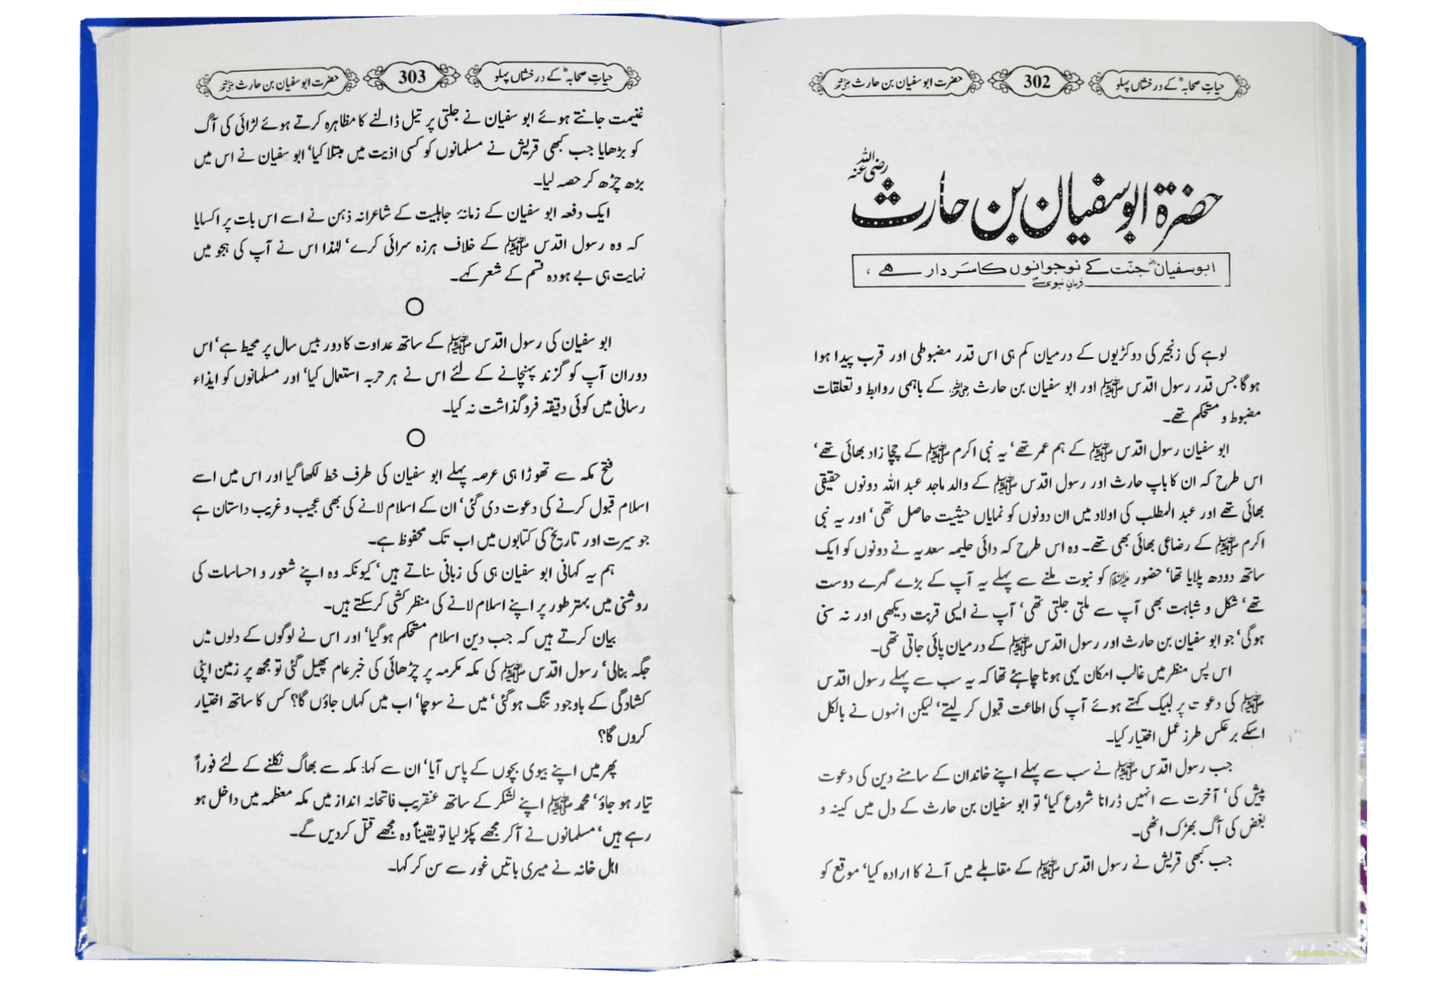 حیاتِ صحابہؓ کے درخشاں پہلو
302
حضرت ابو سفیان بن حارث ؓ
حضرۃ ابو سفیان بن حارث رضی اللہ عنہ
ابو سفیانؓ جنّت کے نوجوانوں کا سردار ہے،
فرمانِ نبویؐ
لوہے کی زنجیر کی دو کڑیوں کے درمیان کم ہی اس قدر مضبوطی اور قرب پیدا ہوا
ہوگا جس قدر رسول اقدس ﷺ اور ابو سفیان بن حارث ؓ کے باہمی روابط و تعلقات
مضبوط و مستحکم تھے۔
ابو سفیان رسول اقدس ﷺ کے ہم عمر تھے‘ یہ نبی اکرم ﷺ کے چچا زاد بھائی تھے‘
اس طرح کہ ان کا باپ حارث اور رسول اقدس ﷺ کے والد ماجد عبد اللہ دونوں حقیقی
بھائی تھے اور عبد المطلب کی اولاد میں ان دونوں کو نمایاں حیثیت حاصل تھی‘ اور یہ نبی
اکرم ﷺ کے رضاعی بھائی بھی تھے۔ وہ اس طرح کہ دائی حلیمہ سعدیہ نے دونوں کو ایک
ساتھ دودھ پلایا تھا‘ حضور ﷺ کو نبوت ملنے سے پہلے یہ آپ کے بڑے گہرے دوست
تھے‘ شکل و شباہت بھی آپ سے ملتی جلتی تھی‘ آپ نے ایسی قربت دیکھی اور نہ سنی
ہوگی‘ جو ابو سفیان بن حارث اور رسول اقدس ﷺ کے درمیان پائی جاتی تھی۔
اس پس منظر میں غالب امکان یہی ہونا چاہئے تھا کہ یہ سب سے پہلے رسول اقدس
ﷺ کی دعوت پر لبیک کہتے ہوئے آپ کی اطاعت قبول کر لیتے‘ لیکن انہوں نے بالکل
اسکے برعکس طرز عمل اختیار کیا۔
جب رسول اقدس ﷺ نے سب سے پہلے اپنے خاندان کے سامنے دین کی دعوت
پیش کی‘ آخرت سے انہیں ڈرانا شروع کیا‘ تو ابو سفیان بن حارث کے دل میں کینہ و
بغض کی آگ بھڑک اٹھی۔
جب کبھی قریش نے رسول اقدس ﷺ کے مقابلے میں آنے کا ارادہ کیا‘ موقع کو
حیاتِ صحابہؓ کے درخشاں پہلو
303
حضرت ابو سفیان بن حارث ؓ
غنیمت جانتے ہوئے ابو سفیان نے جلتی پر تیل ڈالنے کا مظاہرہ کرتے ہوئے لڑائی کی آگ
کو بڑھایا جب کبھی قریش نے مسلمانوں کو کسی اذیت میں مبتلا کیا‘ ابو سفیان نے اس میں
بڑھ چڑھ کر حصہ لیا۔
ایک دفعہ ابو سفیان کے زمانۂ جاہلیت کے شاعرانہ ذہن نے اسے اس بات پر اکسایا
کہ وہ رسول اقدس ﷺ کے خلاف ہرزہ سرائی کرے‘ لہٰذا اس نے آپ کی ہجو میں
نہایت ہی بے ہودہ قسم کے شعر کہے۔
ابو سفیان کی رسول اقدس ﷺ کے ساتھ عداوت کا دور بیس سال پر محیط ہے‘ اس
دوران آپ کو گزند پہنچانے کے لئے اس نے ہر حربہ استعمال کیا‘ اور مسلمانوں کو ایذاء
رسانی میں کوئی دقیقہ فروگذاشت نہ کیا۔
فتح مکہ سے تھوڑا ہی عرصہ پہلے ابو سفیان کی طرف خط لکھا گیا اور اس میں اسے
اسلام قبول کرنے کی دعوت دی گئی‘ ان کے اسلام لانے کی بھی عجیب و غریب داستان ہے
جو سیرت اور تاریخ کی کتابوں میں اب تک محفوظ ہے۔
ہم یہ کہانی ابو سفیان ہی کی زبانی سناتے ہیں‘ کیونکہ وہ اپنے شعور و احساسات کی
روشنی میں بہتر طور پر اپنے اسلام لانے کی منظر کشی کر سکتے ہیں۔
بیان کرتے ہیں کہ جب دین اسلام مستحکم ہوگیا‘ اور اس نے لوگوں کے دلوں میں
جگہ بنالی‘ رسول اقدس ﷺ کی مکہ مکرمہ پر چڑھائی کی خبر عام پھیل گئی تو مجھ پر زمین اپنی
کشادگی کے باوجود تنگ ہوگئی‘ میں نے سوچا‘ اب میں کہاں جاؤں گا؟ کس کا ساتھ اختیار
کروں گا؟
پھر میں اپنے بیوی بچوں کے پاس آیا‘ ان سے کہا: مکہ سے بھاگ نکلنے کے لئے فوراً
تیار ہو جاؤ‘ محمد ﷺ اپنے لشکر کے ساتھ عنقریب فاتحانہ انداز میں مکہ معظمہ میں داخل ہو
رہے ہیں‘ مسلمانوں نے آکر مجھے پکڑ لیا تو یقیناً وہ مجھے قتل کردیں گے۔
اہل خانہ نے میری باتیں غور سے سن کر کہا۔